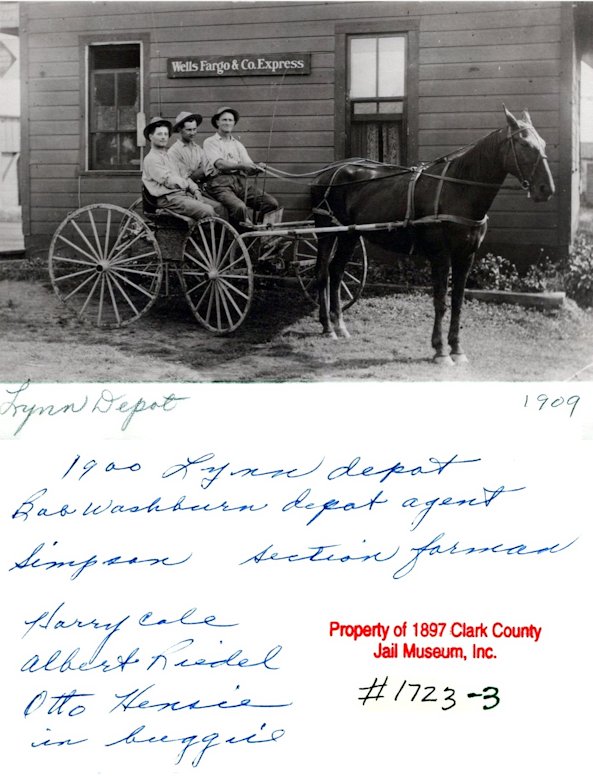 Wells Fargo & Co. Express
Lynn Depot 1909
1900 Lynn depot
Bob Washburn depot agent
Simpson section forman
Harry Cole
Albert Riedel
Otto Hensie
in buggie
Property of 1897 Clark County
Jail Museum, Inc.
#1723-3